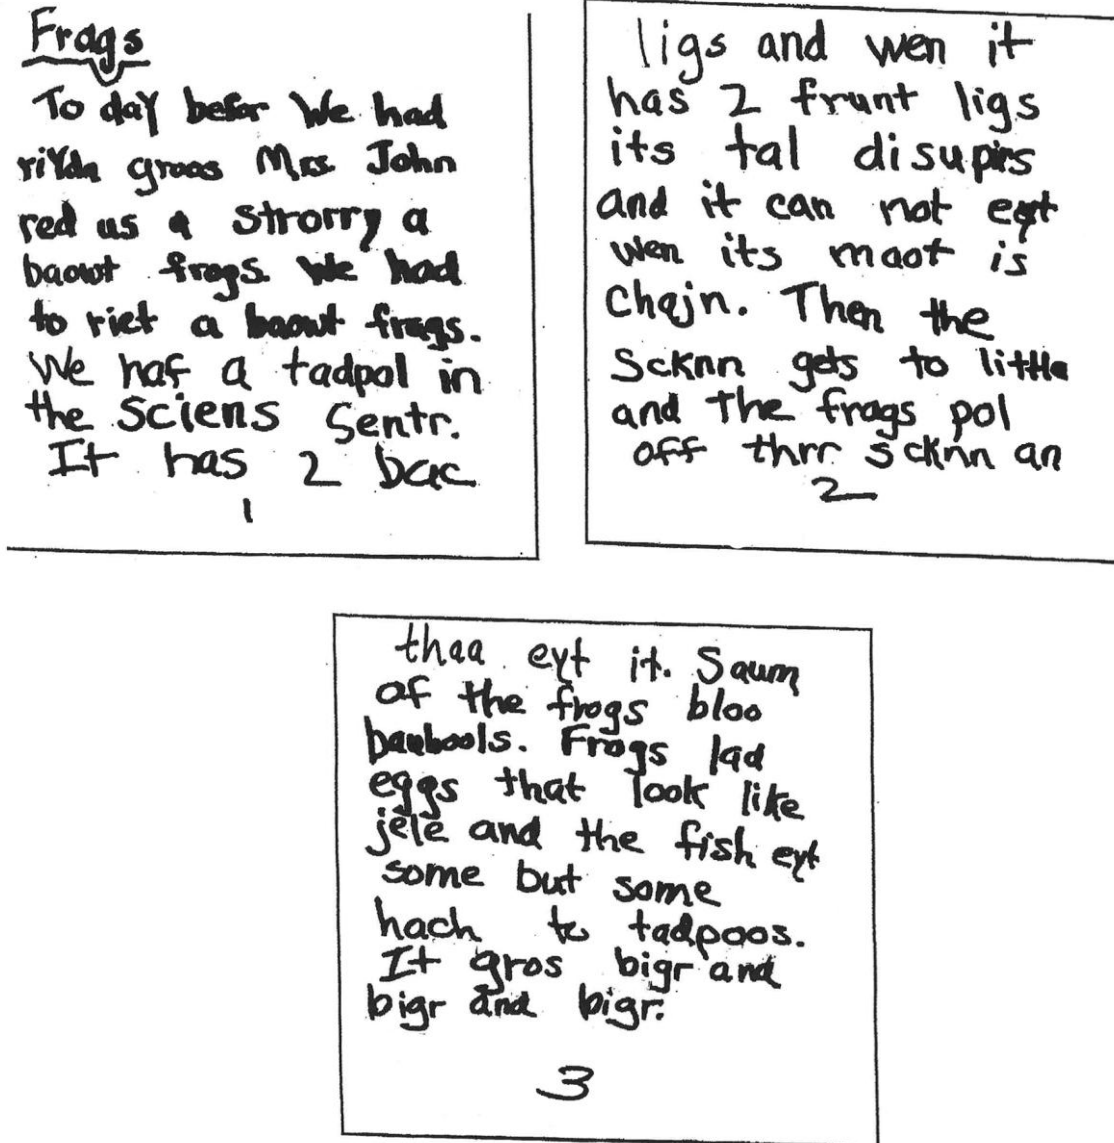 Frags
To day befor We had
riYda groos Mrs. John
red us a strorry a
baowt frogs. We had
to riet a baowt frags.
We haf a tadpol in
the sciens Sentr.
It has 2 bac
1
ligs and wen it
has 2 frunt ligs
its tal disupirs
and it can not eyt
wen its maot is
chajn. Then the
Scknn gets to little
and the frags pol
off thrr scknn an
2
thaa eyt it. Saum
of the frogs bloo
baubools. Frogs lad
eggs that look like
jele and the fish eyt
some but some
hach to tadpoos.
It gros bigr and
bigr and bigr.
3